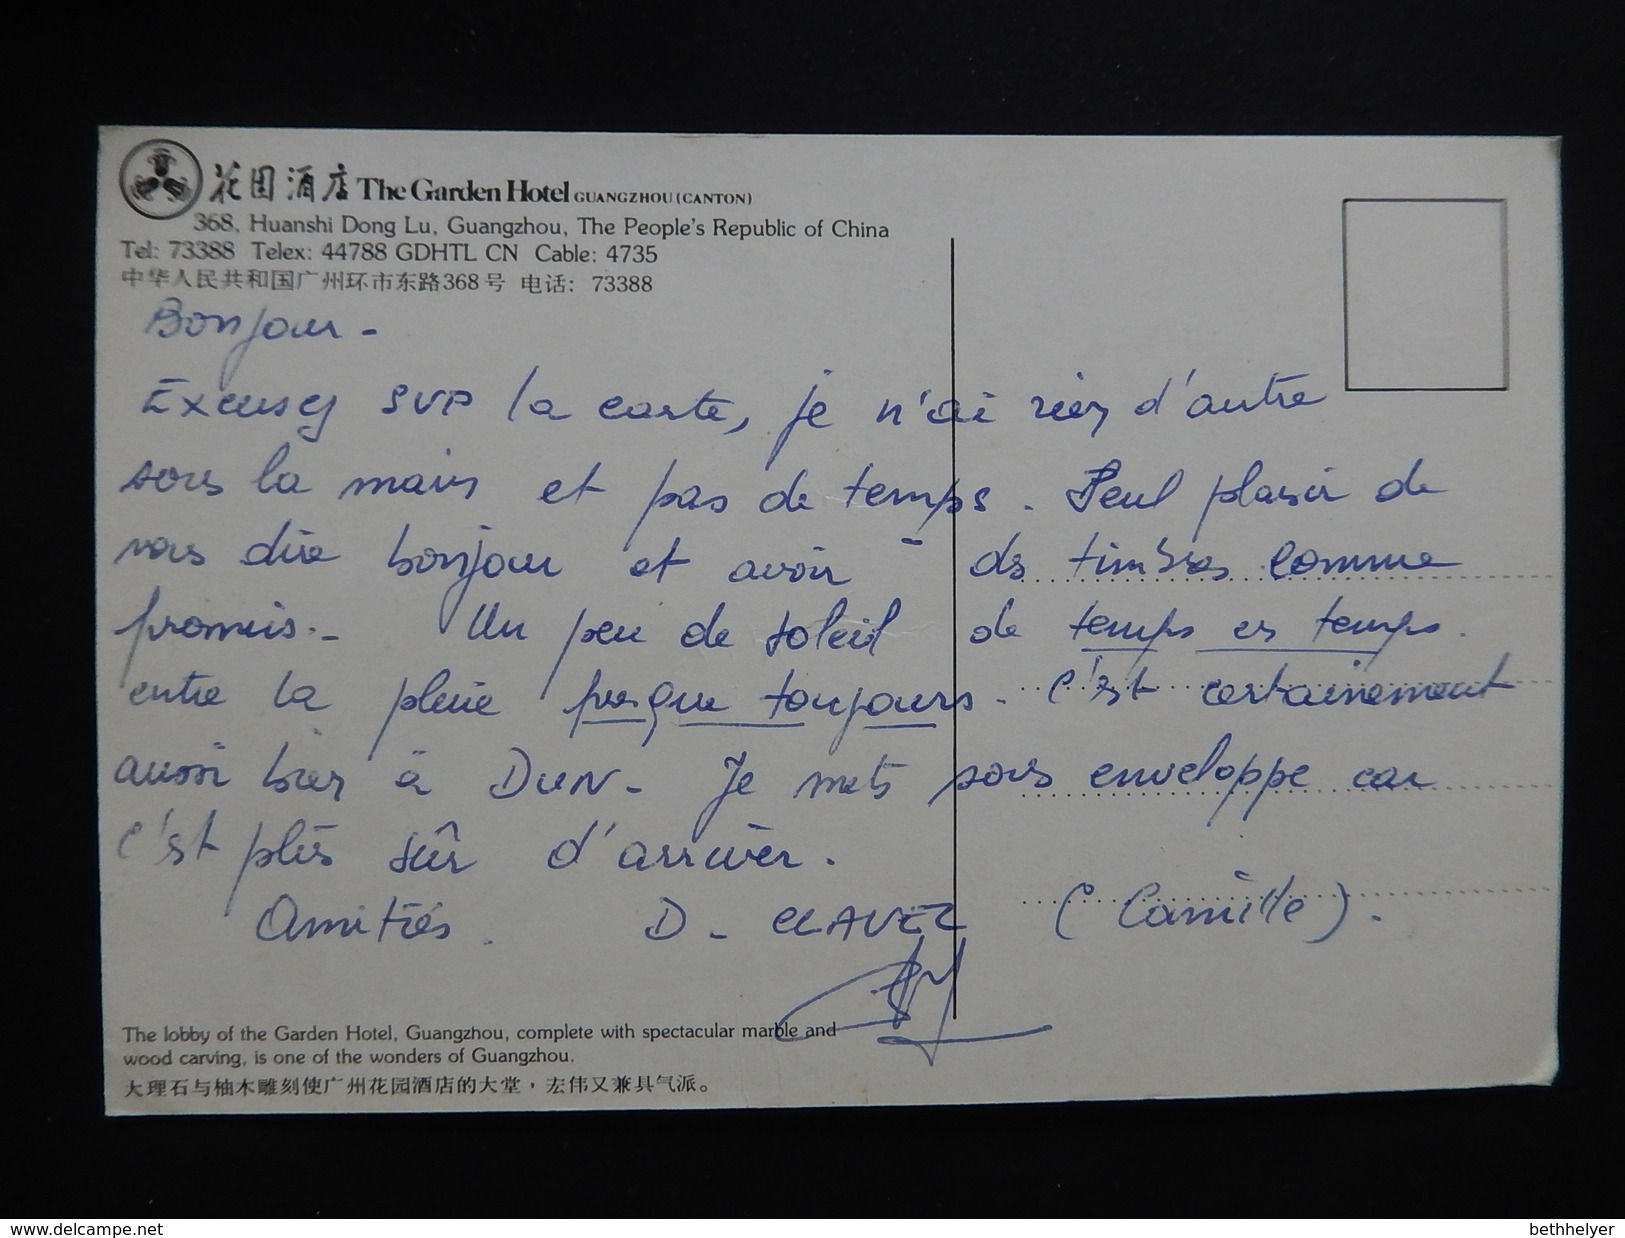 花园酒店 The Garden Hotel GUANGZHOU (CANTON)
368, Huanshi Dong Lu, Guangzhou, The People's Republic of China
Tel: 73388 Telex: 44788 GDHTL CN Cable: 4735
中华人民共和国广州环市东路368号 电话: 73388
Bonjour -
Excusez SVP la carte, je n'ai rien d'autre
sous la main et pas de temps. Seul plaisir de
vous dire bonjour et avoir - ds timbres comme
promis.- Un peu de soleil de temps en temps.
entre la pluie presque toujours. C'est certainement
aussi bien à DUN - Je mets sous enveloppe car
c'est plus sûr d'arriver.
Amitiés. D - CLAVEL (Camille).
The lobby of the Garden Hotel, Guangzhou, complete with spectacular marble and
wood carving, is one of the wonders of Guangzhou.
大理石与柚木雕刻使广州花园酒店的大堂，宏伟又兼具气派。
www.delcampe.net
bethhelyer